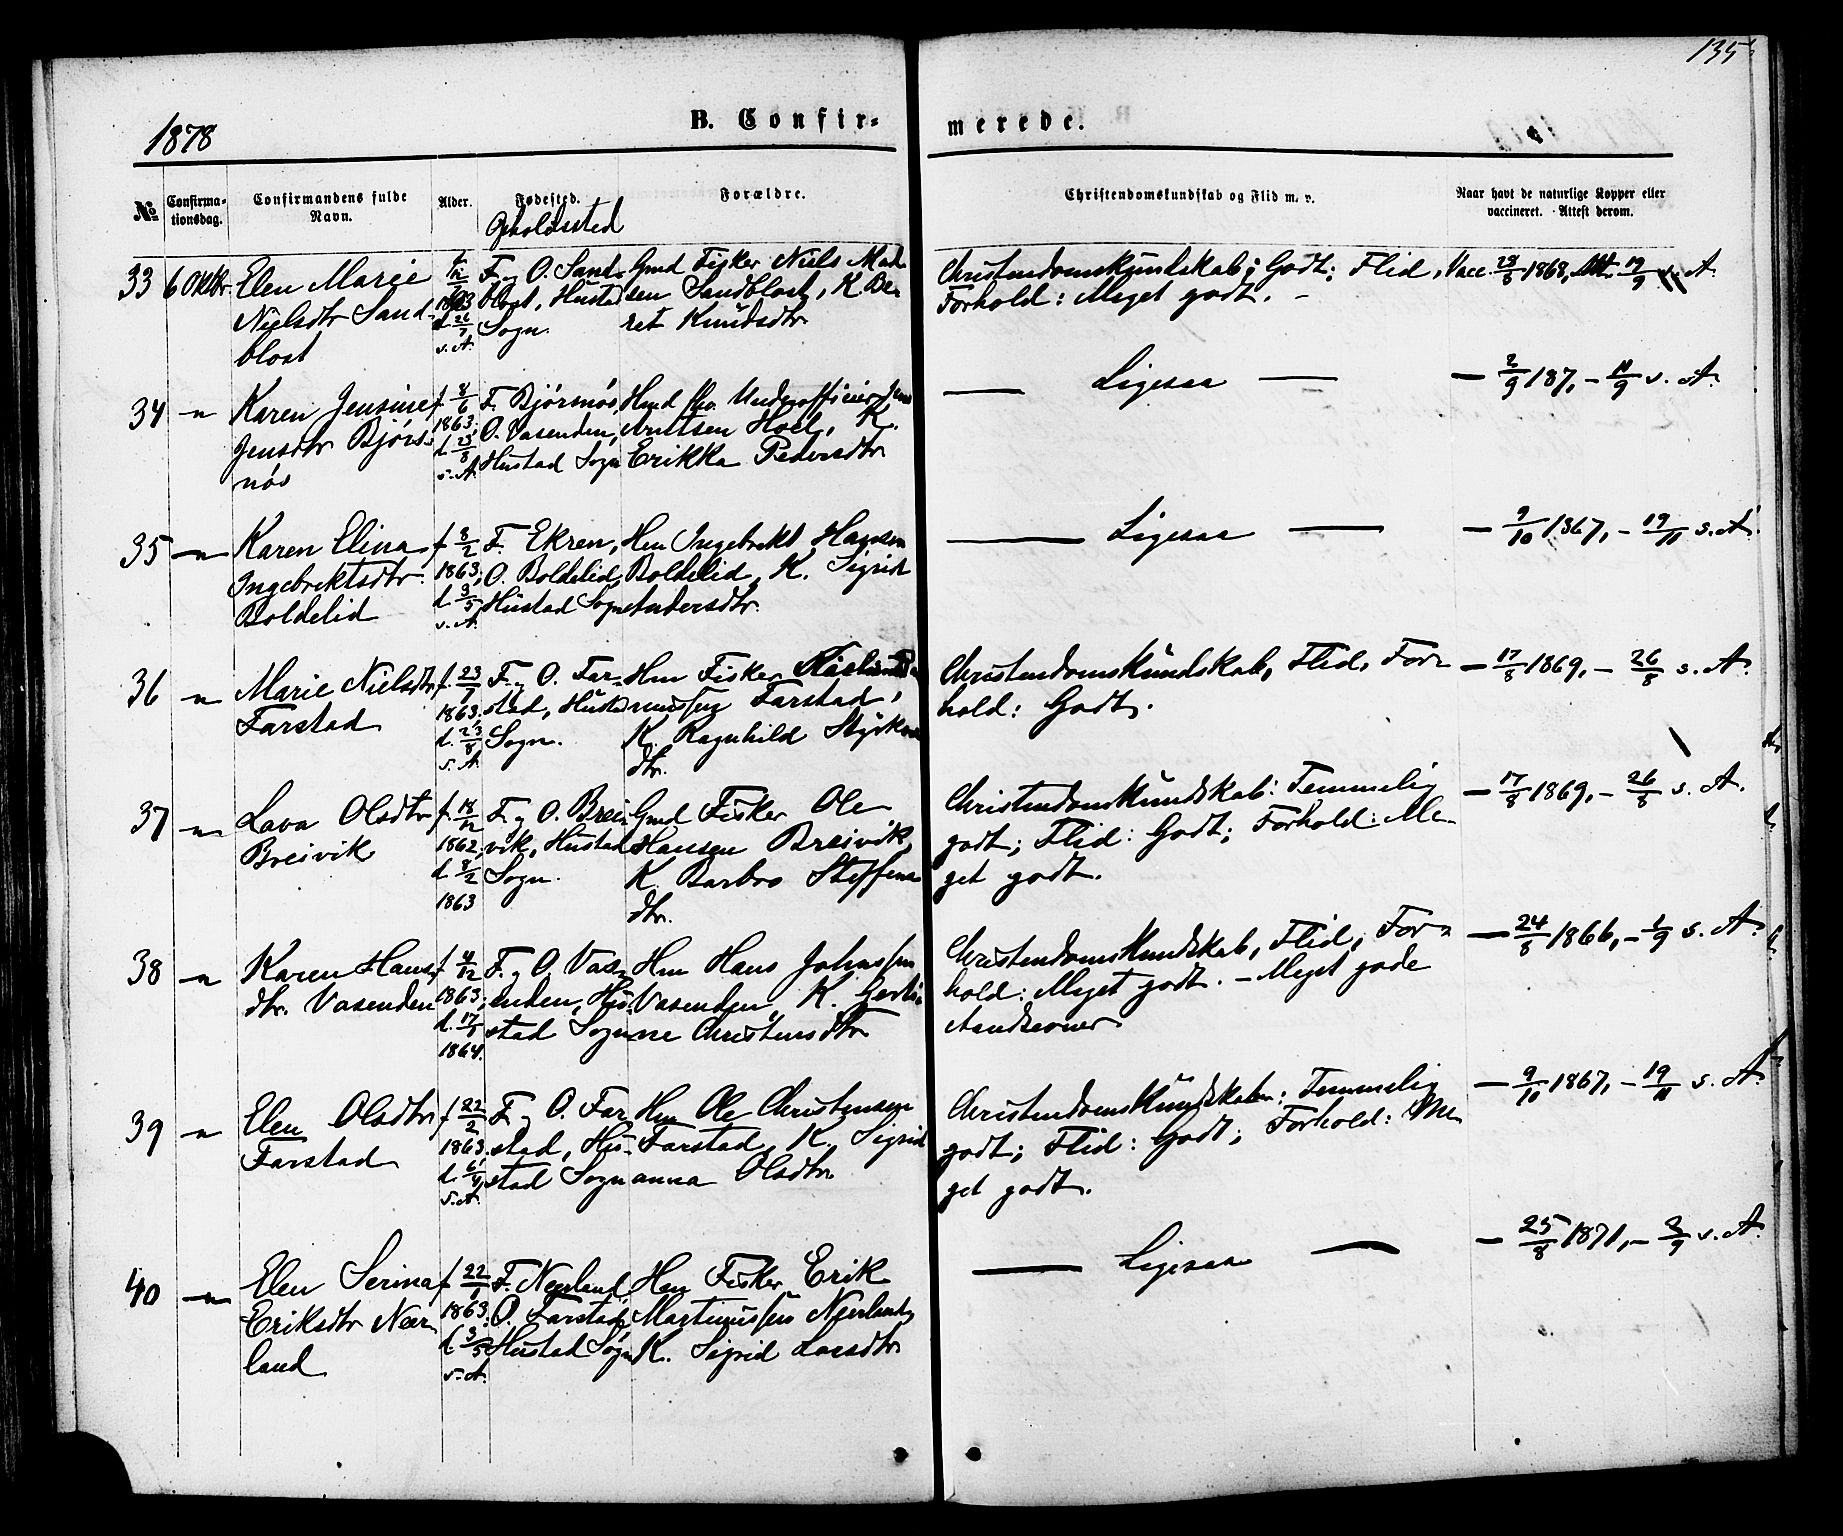 135
1878
B. Confir-
merede.
No
Confirma-
tionsdag.
Confirmandens fulde
Navn.
Alder.
Fødested.
Opholdssted
Forældre.
Christendomskundskab og Flid m. v.
Naar havt de naturlige Kopper eller
vaccineret. Attest derom.
33 6 Oktbr. Elen Marie
Nielsdtr Sand-
blost
1863
d. 26/7
s. A.
F. og O. Sand-
blost, Hustad
Sogn.
Gmd Fisker Niels Mad-
sen Sandblost, K. Be-
ret Knudsdtr
Christendomskundskab: Godt; Flid,
Forhold: Meget godt. –
Vacc. 28/8 1868, Att. 19/9 s. A.
34 –„– Karen Jensine
Jensdtr Bjørs-
nøs
f. 8/6
1863,
d. 23/8
s. A.
F. Bjørsnøs,
O. Vasenden,
Hustad Sogn
Underofficier Jens
Arntsen Hoel, K.
Erikka Pedersdtr
— Ligesaa —
– 2/9 187, – 11/9 s. A.
35 –„– Karen Elina
Ingebrektsdtr
Boldelid
f. 8/2
1863,
d. 3/5
s. A.
F. Ekren,
O. Boldelid,
Hustad Sogn
Hm Ingebrekt Hansen
Boldelid, K. Sigrid
Andersdtr.
— Ligesaa —
– 9/10 1867, – 19/11 s. A.
36 –„– Marie Nielsdtr
Farstad
f. 23/7
1863,
d. 23/8
s. A.
F. og O. Far-
stad, Hustad
Sogn.
Hm Fisker
Farstad,
K. Ragnhild
dtr.
Christendomskundskab, Flid, For-
hold: Godt.
– 17/8 1869, – 26/8 s. A.
37 –„– Lava Olsdtr
Breivik
f. 18/12
1862,
d. 8/2
1863
F. og O. Brei-
vik, Hustad
Sogn.
Gmd Fisker Ole
Hansen Breivik,
K. Barbro Steffens
dtr.
Christendomskundskab: Temmelig
godt; Flid: Godt; Forhold: Me-
get godt.
– 17/8 1869, – 26/8 s. A.
38 –„– Karen Hans-
dtr. Vasenden
f. 4/12
1863,
d. 17/1
1864.
F. og O. Vas-
enden, Hu-
stad Sogn
Hm Hans Johnssen
Vasenden, K. Gerti-
ne Christensdtr
Christendomskundskab, Flid, For-
hold: Meget godt. – Meget gode
Aandsevner
– 24/8 1866, – 2/9 s. A.
39 –„– Elen Olsdtr
Farstad
f. 22/2
1863,
d. 6/4
s. A.
F. og O. Far
stad, Hu-
stad Sogn
Hm Ole Christensen
Farstad, K. Sigrid
anna Olsdtr
Christendomskundskab: Temmelig
godt; Flid: Godt; Forhold: Me
get godt.
– 9/10 1867, – 19/11 s. A.
40 –„– Elen Serina
Eriksdtr Nær
land
f. 22/1
1863,
d. 3/5
s. A.
F. Nerland
O. Farstad,
Hustad Sogn
Hm Fisker Erik
Martinussen Nerland,
K. Sigrid Larsdtr
— Ligesaa —
– 25/8 1871, – 2/9 s. A.